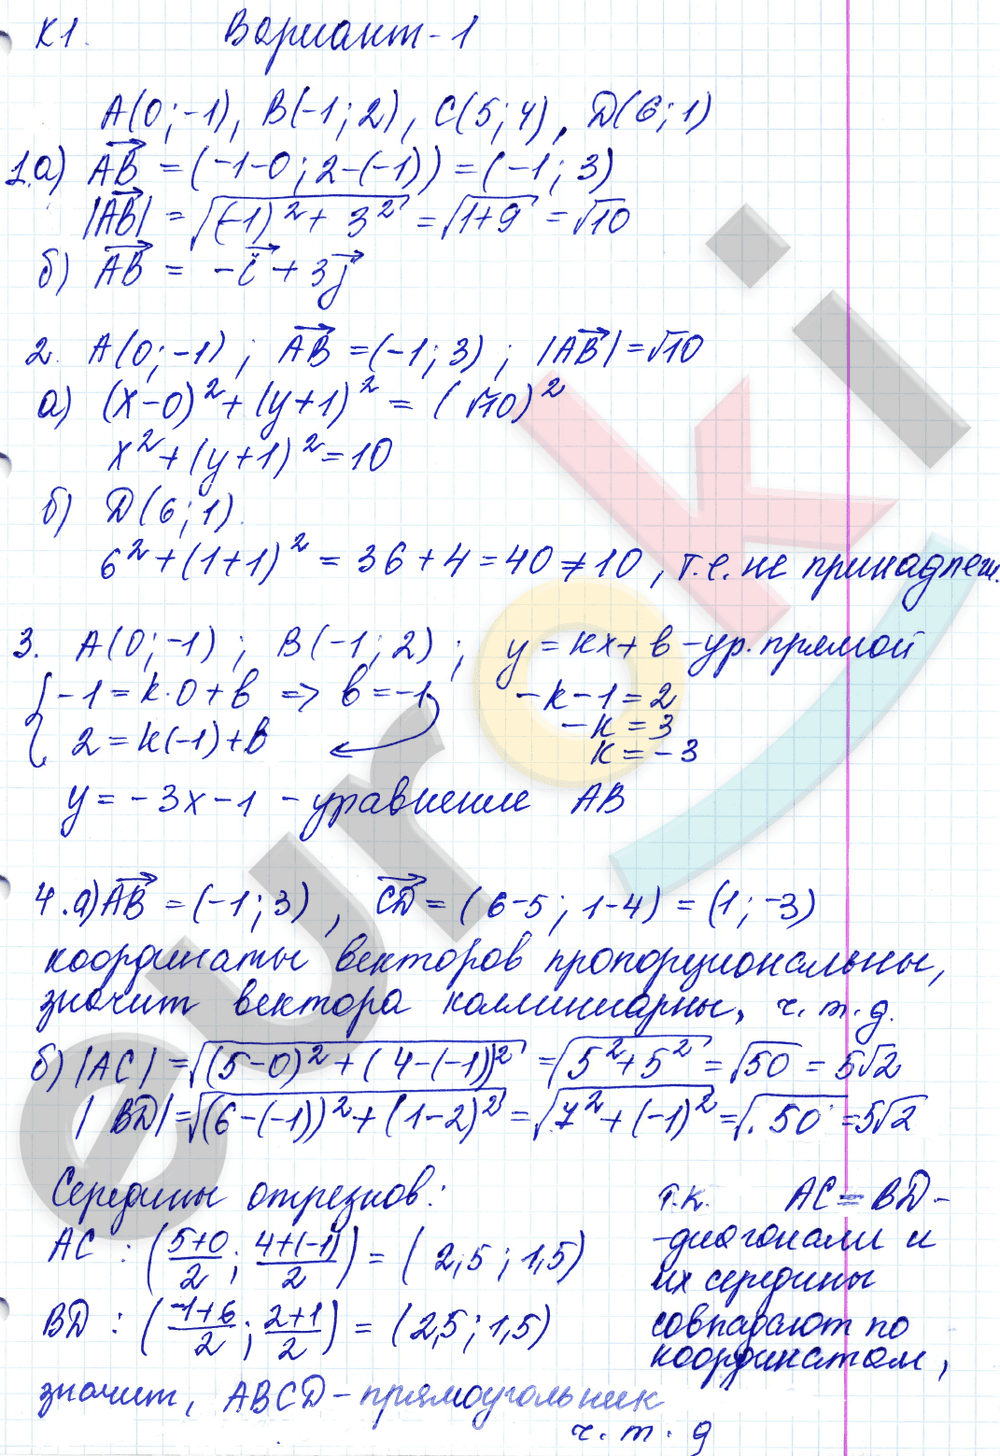 К1. Вариант-1
A(0;-1), B(-1;2), C(5;4), D(6;1)
1.а) AB = (-1-0; 2-(-1)) = (-1; 3)
|AB| = √((-1)² + 3²) = √(1+9) = √10
б) AB = -i + 3j
2. A(0;-1); AB = (-1; 3); |AB| = √10
а) (x-0)² + (y+1)² = (√10)²
x² + (y+1)² = 10
б) D(6;1).
6² + (1+1)² = 36 + 4 = 40 ≠ 10, т.е. не принадлеж.
3. A(0;-1); B(-1;2); y = kx + b - ур. прямой
-1 = k·0 + b => b = -1 -k-1 = 2
2 = k(-1) + b -k = 3
k = -3
y = -3x - 1 - уравнение AB
4.а) AB = (-1; 3), CD = (6-5; 1-4) = (1; -3)
координаты векторов пропорциональны,
значит вектора коллинеарны, ч.т.д.
б) |AC| = √((5-0)² + (4-(-1))²) = √(5²+5²) = √50 = 5√2
|BD| = √((6-(-1))² + (1-2)²) = √(7² + (-1)²) = √50 = 5√2
Середины отрезков:
AC : (5+0/2; 4+(-1)/2) = (2,5; 1,5)
BD : (-1+6/2; 2+1/2) = (2,5; 1,5)
т.к. AC = BD -
-диагонали и
их середины
совпадают по
координатам,
значит, ABCD - прямоугольник
ч.т.д
euroki